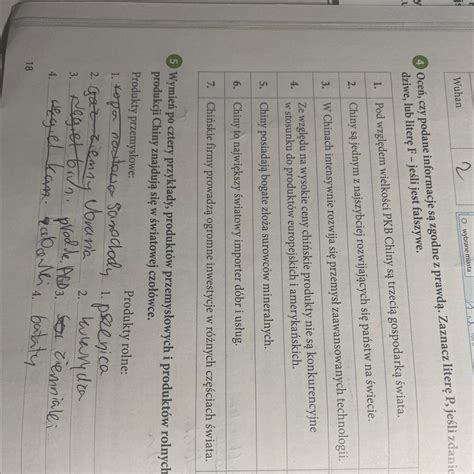 Wuhan
2
wybrane miasta
4 Oceń, czy podane informacje są zgodne z prawdą. Zaznacz literę P, jeśli zdanie
dziwe, lub literę F – jeśli jest fałszywe.
1. Pod względem wielkości PKB Chiny są trzecią gospodarką świata.
2. Chiny są jednym z najszybciej rozwijających się państw na świecie.
3. W Chinach intensywnie rozwija się przemysł zaawansowanych technologii.
4. Ze względu na wysokie ceny chińskie produkty nie są konkurencyjne
w stosunku do produktów europejskich i amerykańskich.
5. Chiny posiadają bogate złoża surowców mineralnych.
6. Chiny to największy światowy importer dóbr i usług.
7. Chińskie firmy prowadzą ogromne inwestycje w różnych częściach świata.
5 Wymień po cztery przykłady produktów przemysłowych i produktów rolnych
produkcji Chiny znajdują się w światowej czołówce.
Produkty przemysłowe: Produkty rolne:
1. ropa samochody 1. pszenica
2. ziemny ubrania 2. kukurydza
3. 3. ziemniaki
4. węgiel kam. 4. bataty
18